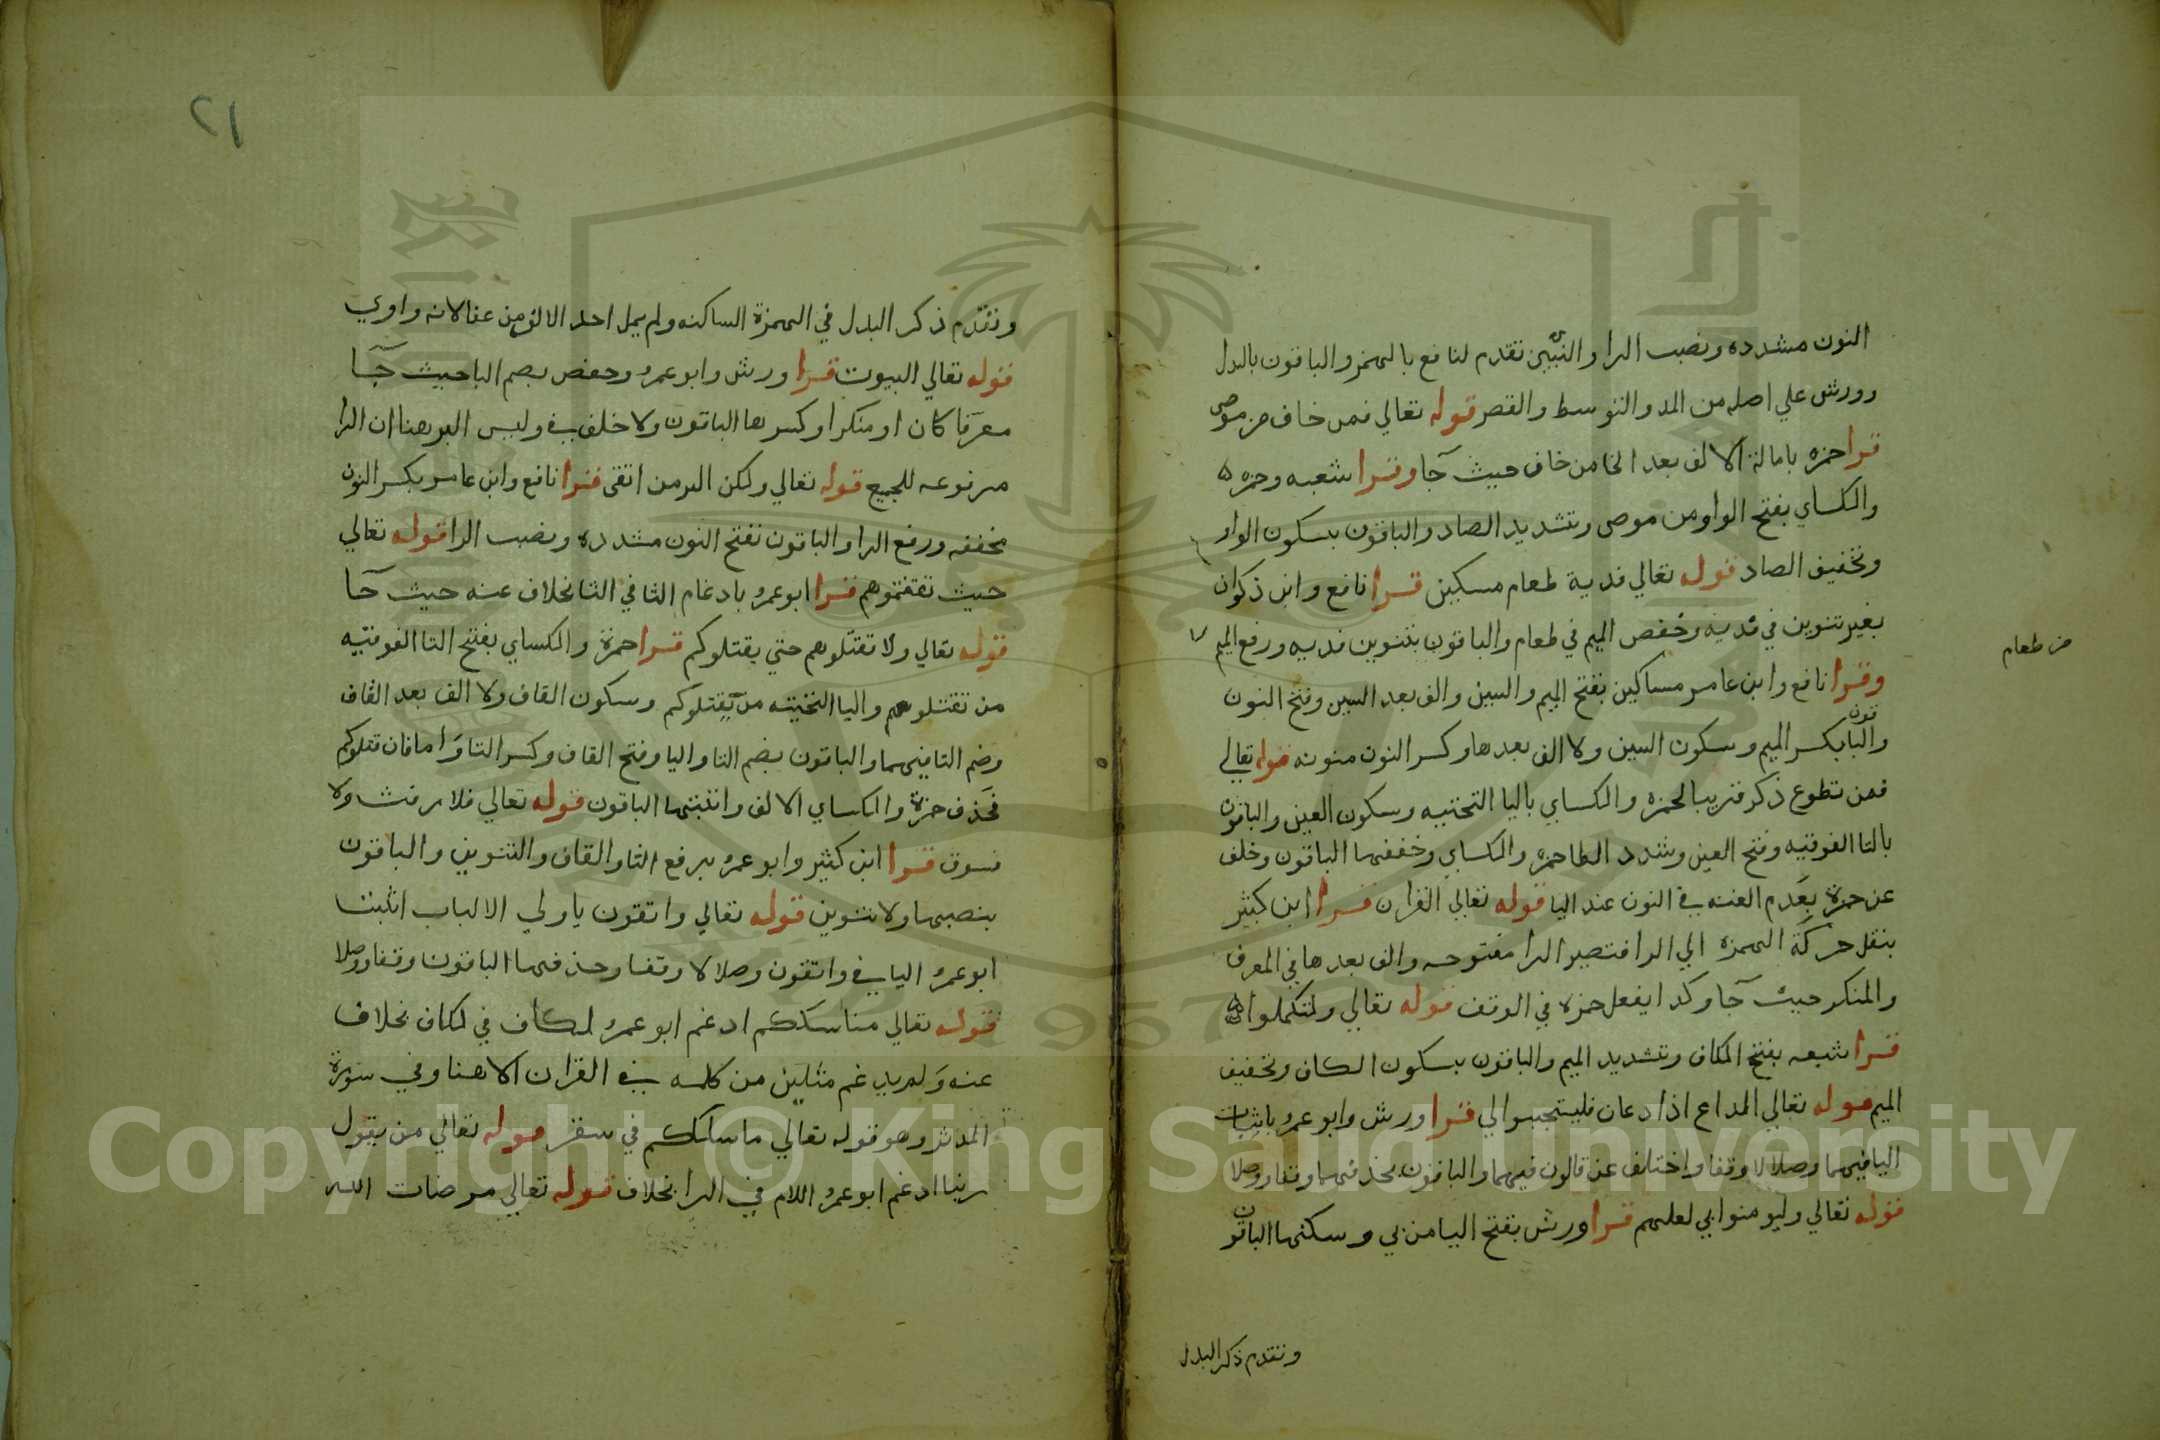 النون مشدده ونصب الرا والنبيّين تقدم لنافع بالهمز والباقون بالبدل
وورش علي اصله من المد والتوسط والقصر قوله تعالي فمن خاف من موص
قرا حمزه بامالة الالف بعد الخا من خاف حيث جآ وقرا شعبه وحمزه
والكساي بفتح الواو من موص وتشديد الصاد والباقون بسكون الواو
وتخفيف الصاد قوله تعالي فدية طعام مسكين قرا نافع وابن ذكوان
بغير تنوين في فدية وخفض الميم في طعام والباقون بتنوين فديه ورفع الميم
من طعام
وقرا نافع وابن عامر مساكين بفتح الميم والسين والف بعد السين وفتح النون
والباقون بكسر الميم وسكون السين ولا الف بعدها وكسر النون منونه قوله تعالي
فمن تطوع ذكر قريبا لحمزه والكساي باليا التحتيه وسكون العين والباقون
بالتا الفوقيه وفتح العين وشدد الطا حمزه والكساي وخففها الباقون وخلف
عن حمزة بعدم الغنه في النون عند اليا قوله تعالي القران قرا ابن كثير
بنقل حركة الهمزه الي الرا فتصير الرا مفتوحه والف بعدها في المعرف
والمنكر حيث جآ وكذا يفعل حمزه في الوقف قوله تعالي ولتكملوا
قرا شعبه بفتح الكاف وتشديد الميم والباقون بسكون الكاف وتخفيف
الميم قوله تعالي الداع اذا دعان فليستجيبوا لي قرا ورش وابو عمرو باثبات
اليا فيهما وصلا لا وقفا واختلف عن قالون فيهما والباقون بحذفهما وقفا ووصلا
قوله تعالي وليومنوا بي لعلهم قرا ورش بفتح اليا من بي وسكنها الباقون
وتقدم ذكر البدل
٢١
وتقدم ذكر البدل في الهمزة الساكنه ولم يمل احد الالف من عفا لانه واوي
قوله تعالي البيوت قرا ورش وابو عمرو وحفص بضم البا حيث جآ
معرفا كان او منكرا وكسرها الباقون ولا خلف في وليس البر هنا ان الرا
مرفوعه للجميع قوله تعالي ولكن البر من اتقي قرا نافع وابن عامر بكسر النون
مخففه ورفع الرا والباقون بفتح النون مشدده ونصب الرا قوله تعالي
حيث ثقفتموهم قرا ابو عمرو بادغام الثا في الثا بخلاف عنه حيث جآ
قوله تعالي ولا تقتلوهم حتي يقتلوكم قرا حمزة والكساي بفتح التا الفوقيه
من تقتلوهم واليا التحتيه من يقتلوكم وسكون القاف ولا الف بعد القاف
وضم التا فيهما والباقون بضم التا واليا وفتح القاف وكسر التا واما فان قتلوكم
فحذف حمزة والكساي الالف واثبتها الباقون قوله تعالي فلا رفث ولا
فسوق قرا ابن كثير وابو عمرو برفع الثا والقاف والتنوين والباقون
بنصبهما ولا تنوين قوله تعالي واتقون ياولي الالباب اثبت
ابو عمرو اليا في واتقون وصلا لا وقفا وحذفها الباقون وقفا ووصلا
قوله تعالي مناسككم ادغم ابو عمرو الكاف في الكاف بخلاف
عنه ولم يدغم مثلين من كلمه في القران الا هنا وفي سورة
المدثر وهو قوله تعالي ما سلككم في سقر قوله تعالي من يقول
ربنا ادغم ابو عمرو اللام في الرا بخلاف قوله تعالي مرضات الله
Copyright © King Saud University
1957